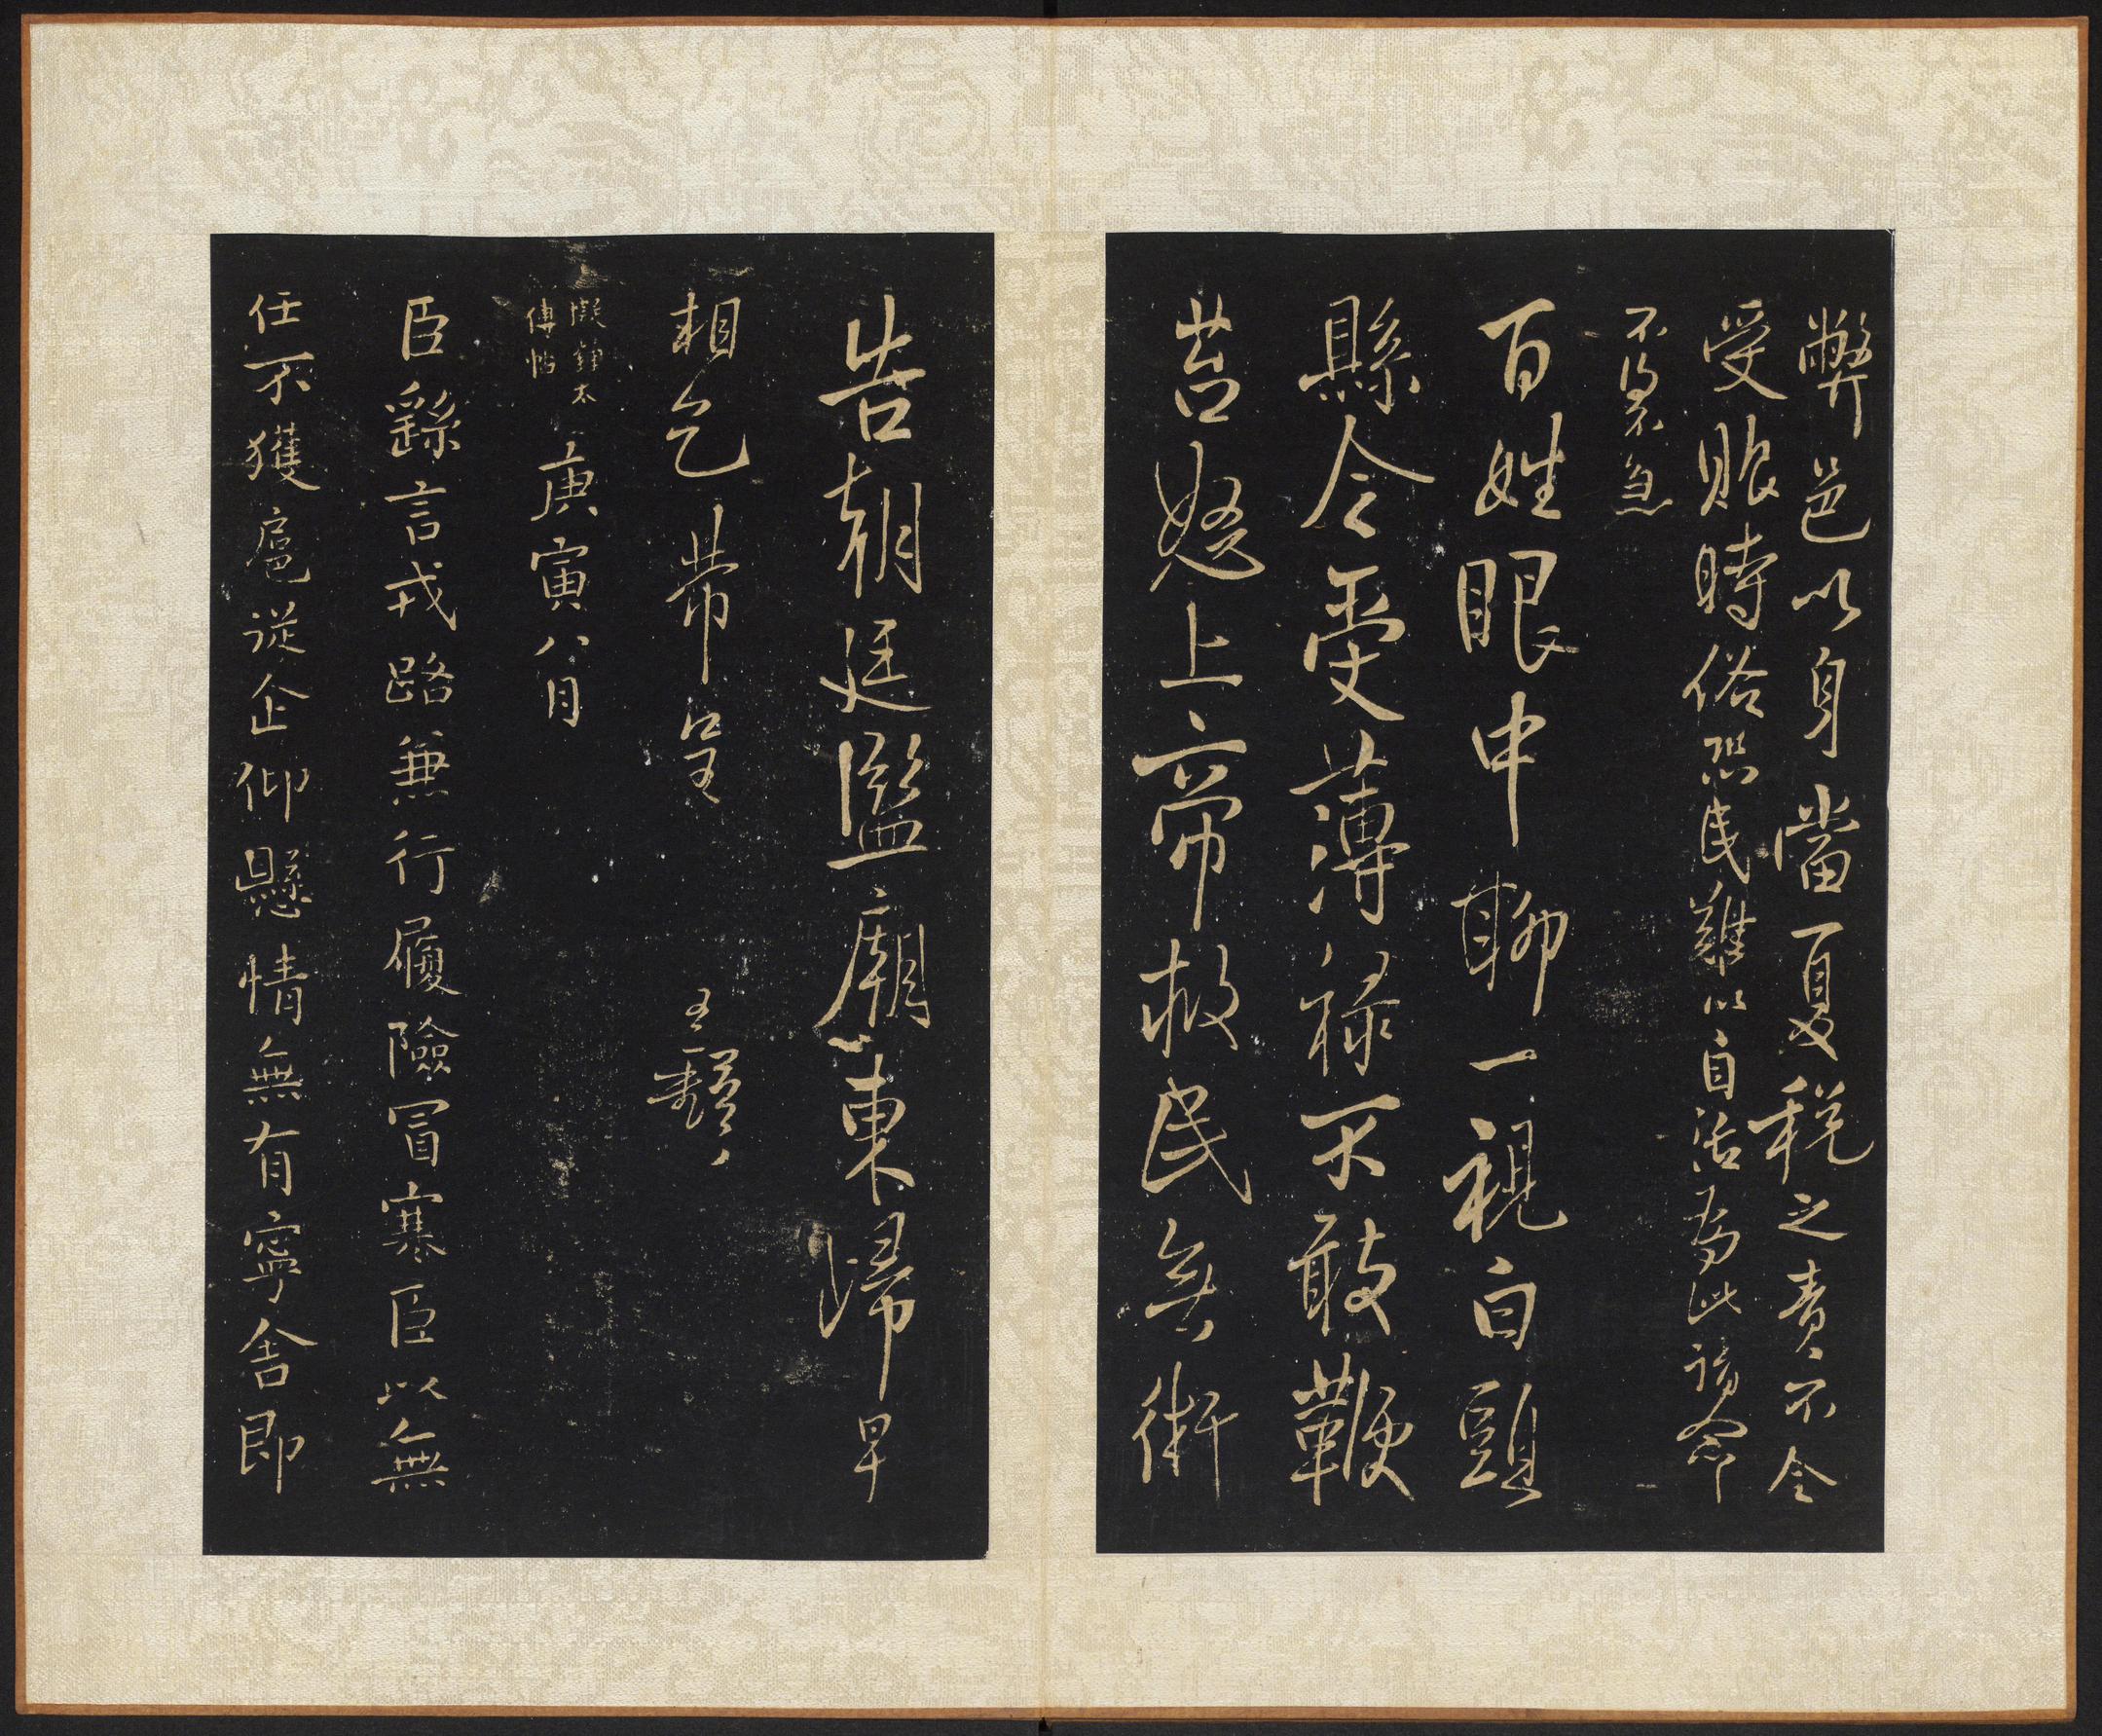 弊邑以身當夏稅之責不令
受賑時俗恐民難以自活為此謗命
不得不急
百姓眼中聊一視白頭
縣令受薄祿不敢鞭
苔怒上帝救民無術
告朝廷監廟東歸早
相乞芾皇恐
擬鍾太
傅帖
庚寅八月
臣繇言戎路兼行履險冒寒臣以無
任不獲扈從企仰懸情無有寧舍即